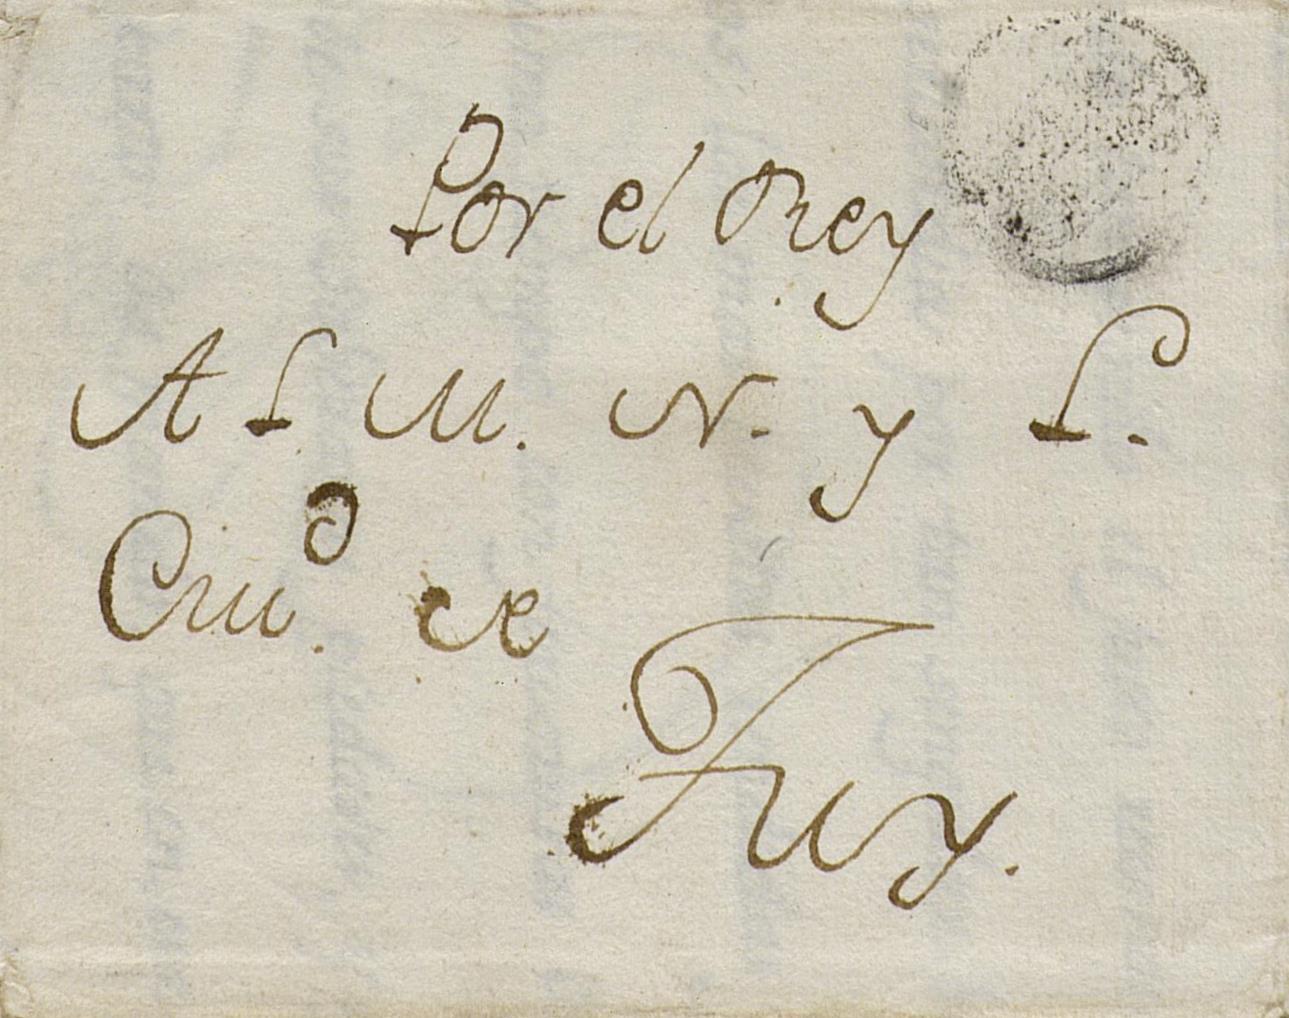 Por el Rey
A L M. N. y L.
Ciud. de
Tuy.